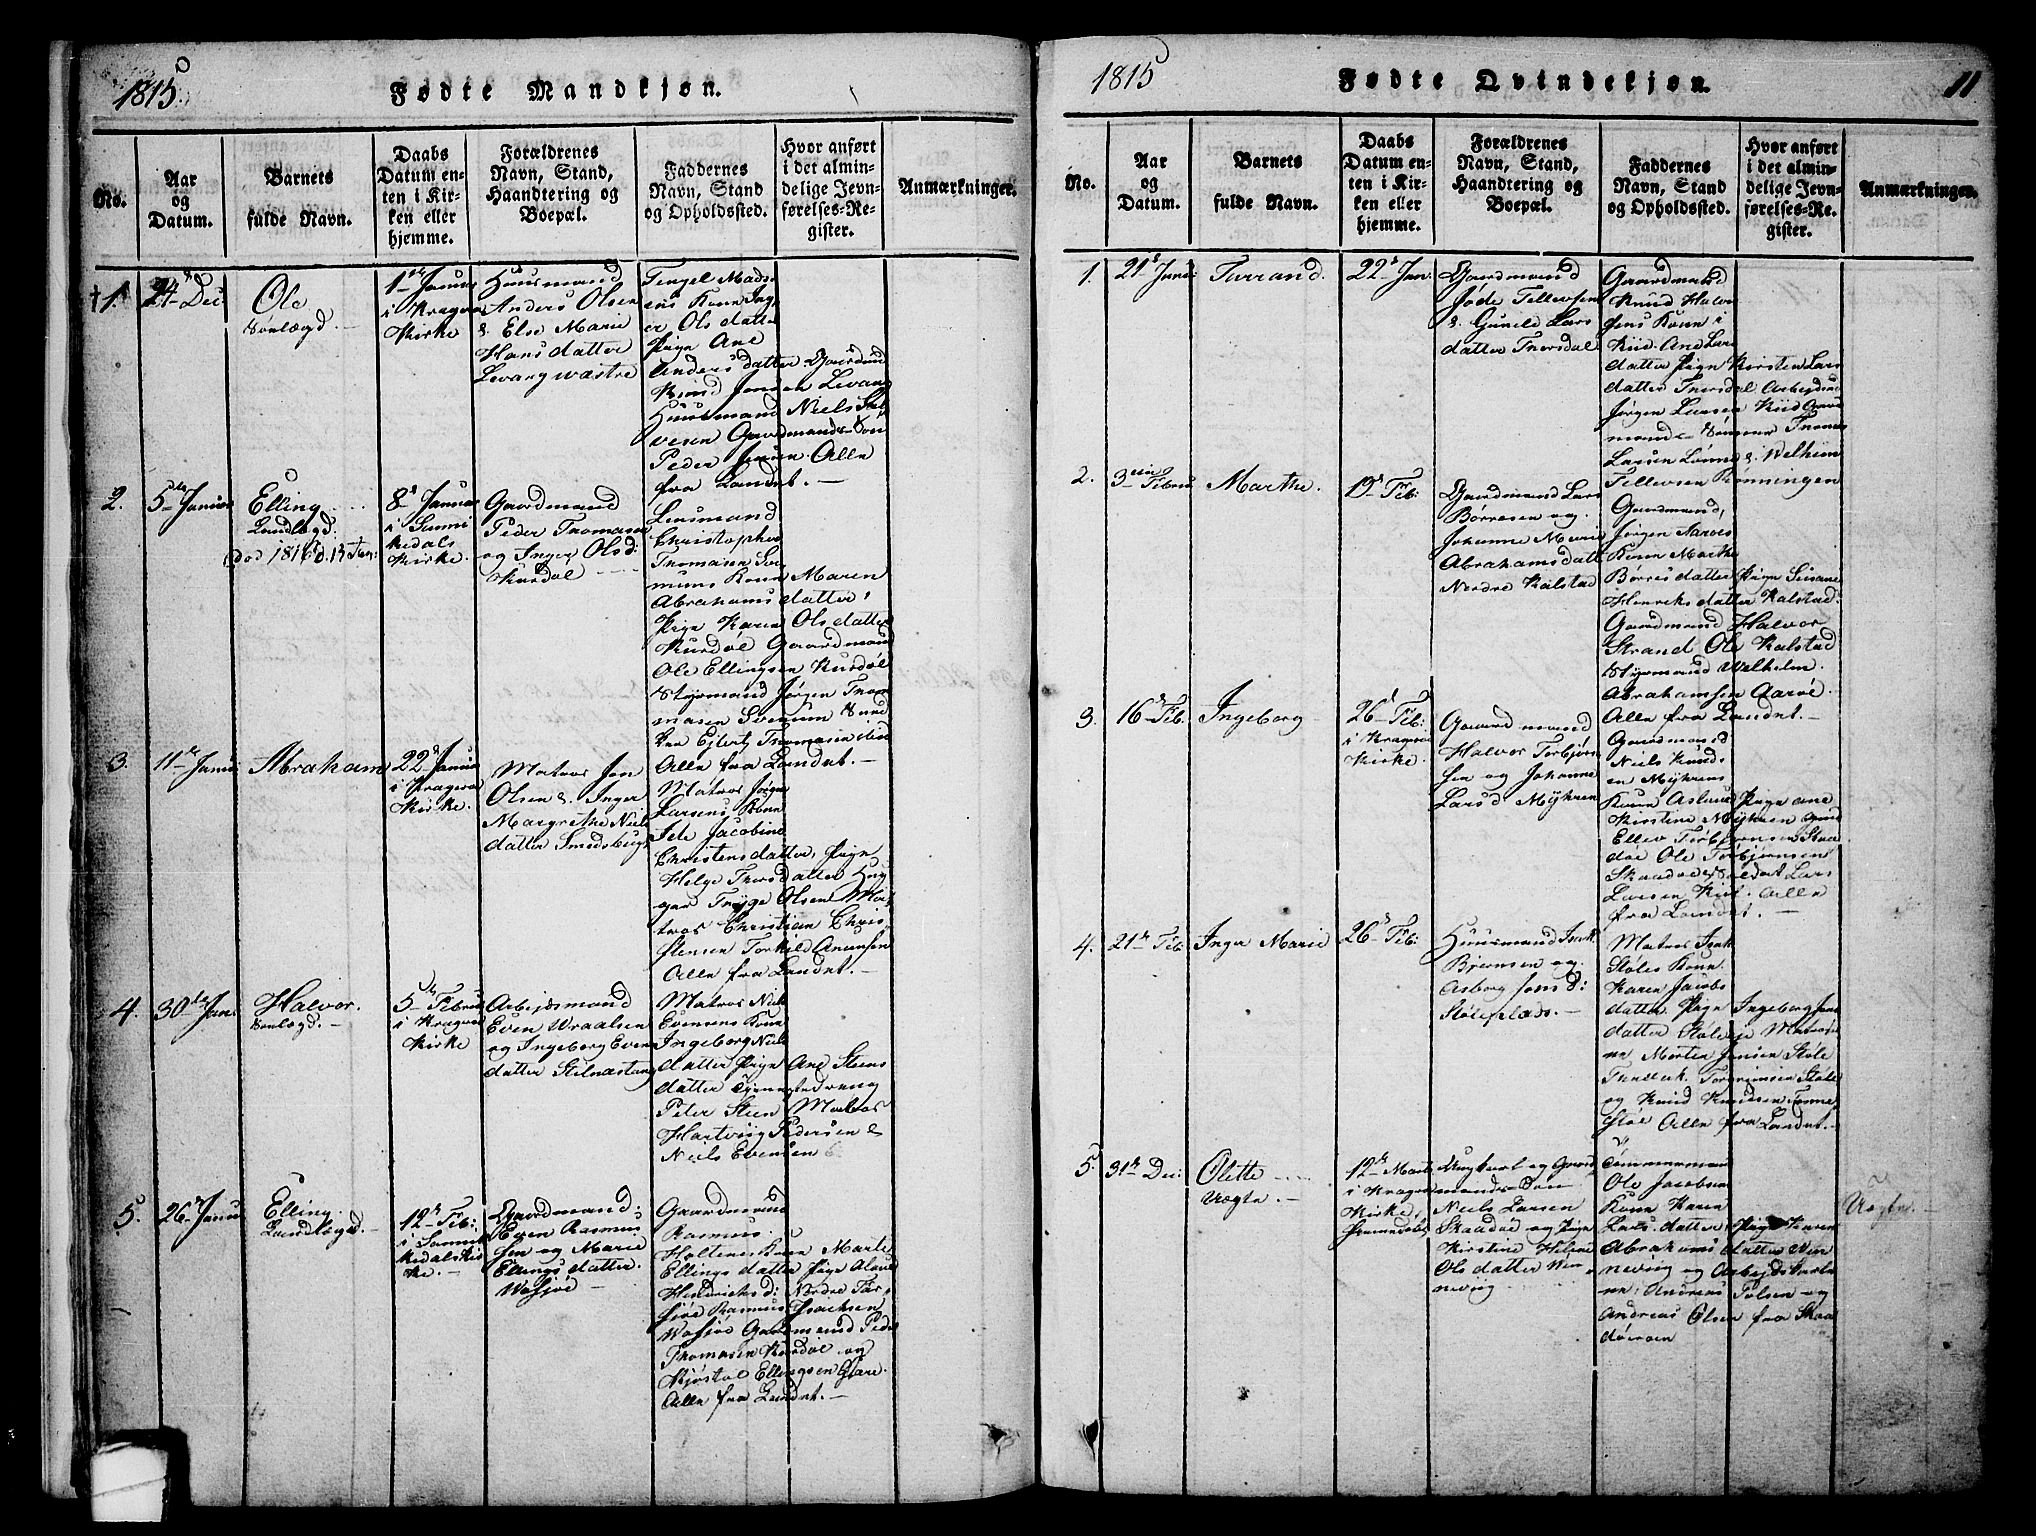 1815.
Fødte Mandkjøn.
No.
Aar
og
Datum.
Barnets
fulde Navn.
Daabs
Datum en-
ten i Kir-
ken eller
hjemme.
Forældrenes
Navn, Stand,
Haandtering og
Boepæl.
Faddernes
Navn, Stand
og Opholdssted.
Hvor anført
i det almin-
delige Jevn-
førelses-Re-
gister.
Anmærkninger.
1.
24 Dec
Ole
1ste Januar
i Kragerø
Kirke
Huusmand
Anders Olsen
& Else Marie
Hans datter
Levangwæstre
Tengel Mad-
sens Kone Ing-
er Ols datter
Pige Ane
Anders datter Gaardmd
Knud Jensen Levang
Huusmand Niels
Gaardmands-Søn
Peder Jensen Alle
fra Landet.
2.
5te Januar
Elling
død 1816 d. 13 Jan:
8de Januar
i Sanni-
kedals
Kirke.
Gaardmand
Peder Thomasen
og Inger Olsd:
Kurdøl
Lensmand
Christopher
Thomasen
Kone Maren
Abrahams datter,
Pige Karen Ols datter
Kurdøl Gaardmand
Ole Ellingsen Kurdøl
Styrmand Jørgen Thom-
masen
Ejlert Thomasen
Alle fra Landet.
3.
11te Janu
Abraham
22de Janua
i Kragerø
Kirke.
Matros Jon
Olsen & Inger
Margrethe Niels
datter Smedsbugt
Matros Jørgen
Larsens Kone
Jacobine
Christens datter, Pige
Helge Thors datter
Olsen Ma-
tros Christian Chris-
stensen Torkild Anunsen
Alle fra Landet.
4.
30te Jan.
Halvor.
5te Februar
i Kragerø
Kirke
Arbejdsmand
Even Wraalsen
og Ingeborg Even
datter Stilnestang
Matros Niels
Evensens Kone
Ingeborg Niels
datter Pige Ane Steens
datter Tjenestedreng
Peter Steen Matros
Hartvig Pedersen &
Niels Evensen
5.
26de Janu
Elling.
12te Feb:
i Sannik-
kedals Kir-
ke.
Gaardmand:
Even Rasmus
sen og Marie
Ellings datter.
Wafjøe
Gaardmand
Rasmus
Holtenes Kone Marte
Ellings datter Pige
Hendrichsd: Nordre Far-
sjøe Rasmus Isachsen
Wafjøe Gaardmand Peder
Thomasen Kurdøl og
Kjøstol Ellingsen
Alle fra Landet.
1815
Fødte Qvindekjøn.
11
No.
Aar
og
Datum.
Barnets
fulde Navn.
Daabs
Datum en-
ten i Kir-
ken eller
hjemme.
Forældrenes
Navn, Stand,
Haandtering og
Boepæl.
Faddernes
Navn, Stand
og Opholdssted.
Hvor anført
i det almin-
delige Jevn-
førelses-Re-
gister.
Anmærkninger.
1.
21de Janu
Turrand.
22de Jan.
Gaardmand
Jøde Tellevsen
& Gunild Lars
datter Thorsdal
Gaardmand
Knud Halvor
sens Kone i
Kiid. Ane Lars
datter Pige Kirsten Lars
datter Thorsdal Arbejdsmd
Jørgen Larsen Kiid Gaard
mands-Sønner Thomes
Larsen Lønne & Welhelm
Tellevsen Rønningen
2.
3die Febru
Marthe.
19de Feb:
Gaardmand Lars
Børresen og
Johanne Marie
Abrahamsdatt
Nerdre Kalstad
Gaardmand,
Jørgen Aaroes
Kone Marthe
Børres datter Pige Susane
Henriks datter Kalstad.
Gaardmand Halvor
Strand Ole Kalstad
Styrmand Welhelm
Abrahamsen Aarøe.
Alle fra Landet.
3.
16de Feb.
Ingeborg
26de Feb:
i Kragerøe
Kirke.
Gaardmand
Halvor Torbjørn
sen og Johanne
Larsd Myhren
Gaardmand
Niels Knuds-
en Myhrens
Kone Aslaug Pige ane
Kirstine Myhren
Ellev Torbjørnsen
Ole Torbjørnsen
Skaadøe Soldat Lars
Larsen Kiil. Alle
fra Landet.
4.
21de Feb.
Inger Marie
26de Feb:
Huusmand Isak
Bjørnsen og
Asborg Jons d:
Støleplads.
Matros Isak
Støles Kone
Karen Jacobs
datter. Pige Ingeborg Jens
datter Støle Matros
Morten Jensen Støle
Torgrimsen Støle
og Knud Knudsen
Støe Alle fra Landet.
5.
31te Dec:
Olette
Uægte.
12te Mart
i Kragerø
Kirke,
Ungkarl og Gaard
mands-Søn
Niels Larsen
Skaadøe og Pige
Kirstine Helene
Ols datter Wen-
nevig
Tømmermand
Ole Jacobsen
Kone Karen
Lars datter. Pige Karen
Abrahams datter Wen
nevig og Arbejdskarle
ne: Andreas Tolsen og
Andreas Olsen fra Skaa
døeroen
Uægte.